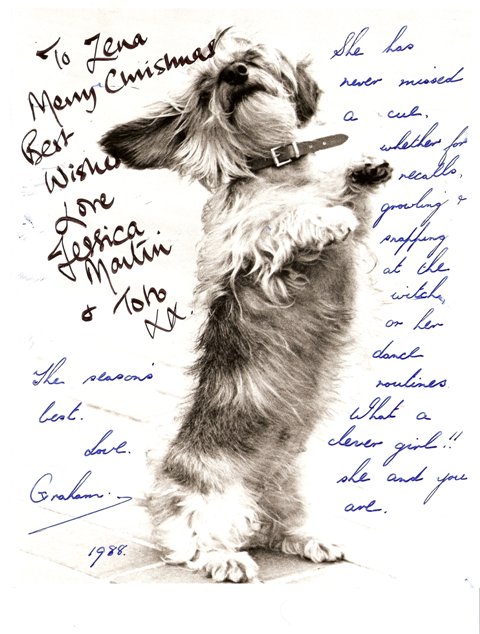 To Lena
Merry Christmas
Best
Wishes
Love
Jessica
Martin
& Toto
xx.
She has
never missed
a cue,
whether for
recalls,
growling &
snapping
at the
witch,
or her
dance
routines.
What a
clever girl!!
she and you
are.
The season's
best.
Love.
Graham.
1988.